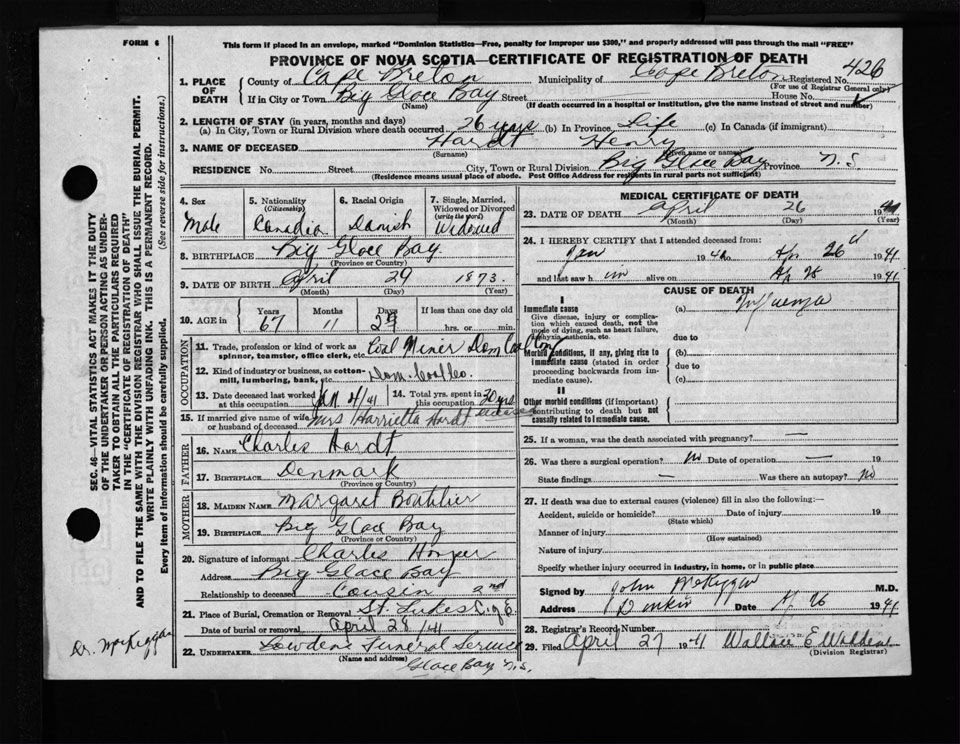 FORM 6
This form if placed in an envelope, marked "Dominion Statistics—Free, penalty for improper use $300," and properly addressed will pass through the mail "FREE"
PROVINCE OF NOVA SCOTIA—CERTIFICATE OF REGISTRATION OF DEATH
1. PLACE OF DEATH
County of Cape Breton Municipality of Cape Breton Registered No. 426
(For use of Registrar General only)
If in City or Town Big Glace Bay Street House No.
(Name) (If death occurred in a hospital or institution, give the name instead of street and number)
2. LENGTH OF STAY (in years, months and days)
(a) In City, Town or Rural Division where death occurred 26 years (b) In Province Life (c) In Canada (if immigrant)
3. NAME OF DECEASED Hardt Henry
(Surname) (Given name or names)
RESIDENCE No. Street City, Town or Rural Division Big Glace Bay Province N.S
(Residence means usual place of abode. Post Office Address for residents in rural parts not sufficient)
4. Sex
Male
5. Nationality (Citizenship)
Canadia
6. Racial Origin
Danish
7. Single, Married, Widowed or Divorced (write the word)
Widowed
8. BIRTHPLACE Big Glace Bay
(Province or Country)
9. DATE OF BIRTH April 29 1873.
(Month) (Day) (Year)
10. AGE in
Years Months Days If less than one day old
67 11 29 hrs. or min.
OCCUPATION
11. Trade, profession or kind of work as spinner, teamster, office clerk, etc. Coal Miner Dom
12. Kind of industry or business, as cotton-mill, lumbering, bank, etc. Dom. Coal Co.
13. Date deceased last worked at this occupation Jan 4/41
14. Total yrs. spent in this occupation 30 yrs
15. If married give name of wife or husband of deceased Mrs Harrietta Hardt deceased
FATHER
16. NAME Charles Hardt
17. BIRTHPLACE Denmark
(Province or Country)
MOTHER
18. MAIDEN NAME Margaret
19. BIRTHPLACE Big Glace Bay
(Province or Country)
20. Signature of informant Charles
Address Big Glace Bay
Relationship to deceased Cousin 2nd
21. Place of Burial, Cremation or Removal St. Lukes C of E.
Date of burial or removal April 28/41
22. UNDERTAKER Lowdens Funeral Service
(Name and address) Glace Bay N.S.
MEDICAL CERTIFICATE OF DEATH
23. DATE OF DEATH April 26 1941
(Month) (Day) (Year)
24. I HEREBY CERTIFY that I attended deceased from:
Jan 194 Ap 26 1941
and last saw h im alive on Ap 1941
CAUSE OF DEATH
I
Immediate cause
Give disease, injury or complication which caused death, not the mode of dying, such as heart failure, asphyxia, asthenia, etc.
(a) Influenza
due to
Morbid conditions, if any, giving rise to immediate cause (stated in order proceeding backwards from immediate cause).
(b)
due to
(c)
II
Other morbid conditions (if important) contributing to death but not causally related to immediate cause.
25. If a woman, was the death associated with pregnancy? —
26. Was there a surgical operation? no Date of operation — 19
State findings — Was there an autopsy? no
27. If death was due to external causes (violence) fill in also the following:—
Accident, suicide or homicide? Date of injury 19
(State which)
Manner of injury
(How sustained)
Nature of injury
Specify whether injury occurred in industry, in home, or in public place
Signed by John McKiggan M.D.
Address Donkin Date Ap 26 1941
28. Registrar's Record Number
29. Filed April 27 1941 Wallace E
(Division Registrar)
SEC. 46—VITAL STATISTICS ACT MAKES IT THE DUTY
OF THE UNDERTAKER OR PERSON ACTING AS UNDER-
TAKER TO OBTAIN ALL THE PARTICULARS REQUIRED
IN THE "CERTIFICATE OF REGISTRATION OF DEATH"
AND TO FILE THE SAME WITH THE DIVISION REGISTRAR WHO SHALL ISSUE THE BURIAL PERMIT.
WRITE PLAINLY WITH UNFADING INK. THIS IS A PERMANENT RECORD.
Every item of information should be carefully supplied. (See reverse side for instructions.)
Dr. McKiggan